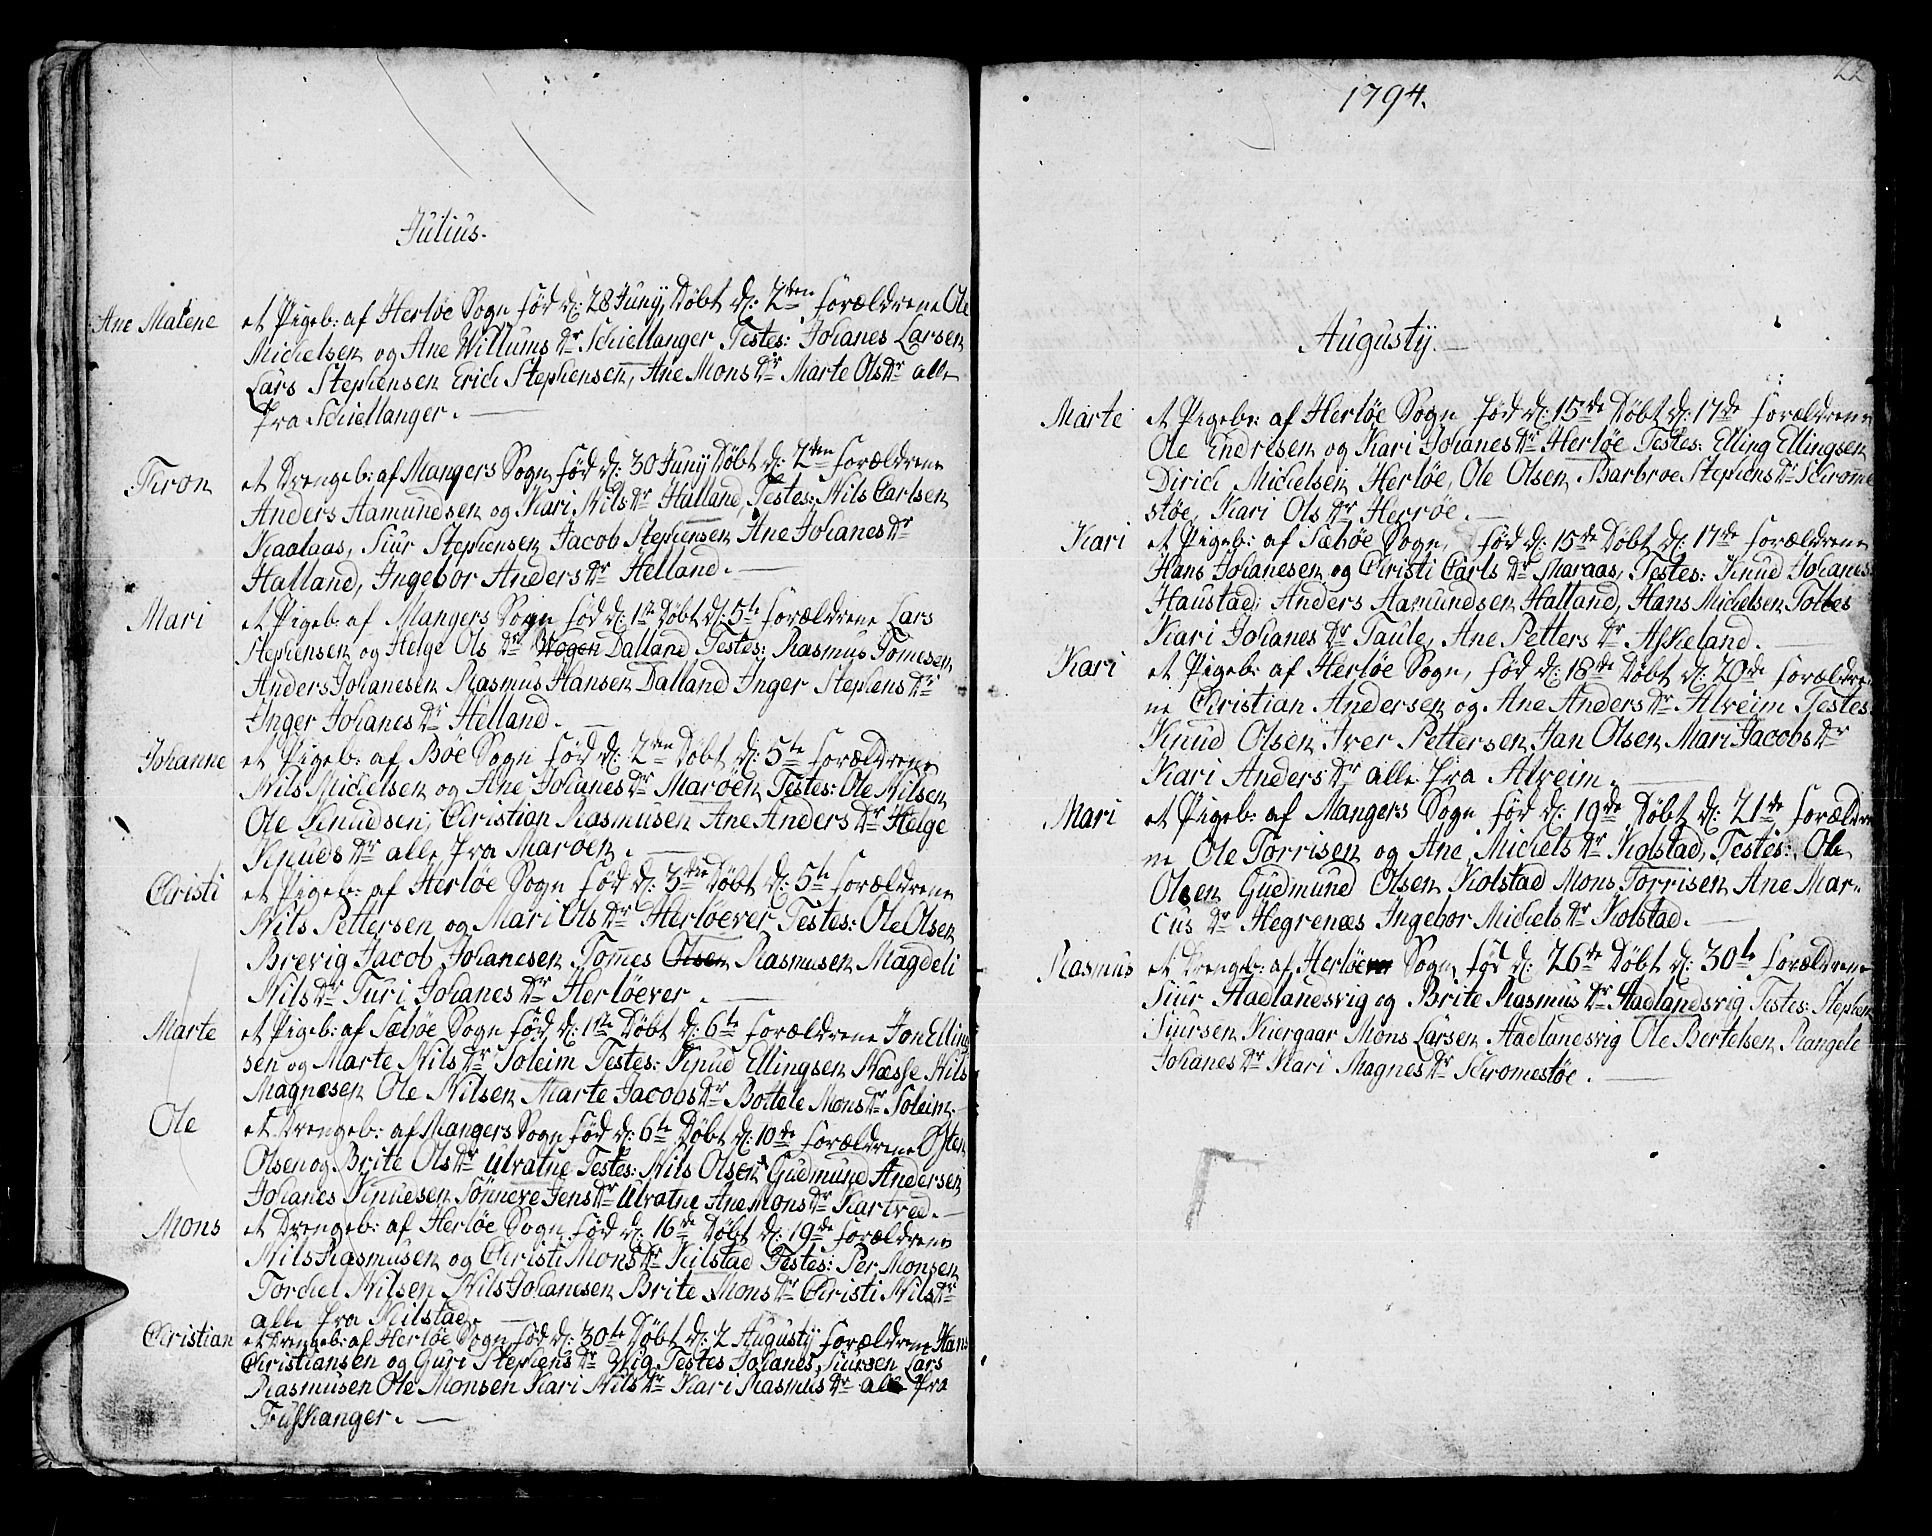 Julius.
Ane Malene et Pigeb: af Herløe Sogn fød d: 28 Juny, Døbt d: 2den forældrene Ole
Michelsen og Ane Willums Dr Schiellanger Testes: Johanes Larsen
Lars Stephensen Erich Stephensen, Ane Mons Dr Marte Ols Dr alle
fra Schiellanger.
et Drengeb: af Mangers Sogn fød d: 30 Juny Døbt d: 2den forældrene
Anders Aamundsen og Kari Nils Dr Halland, Testes: Nils Carlsen
Kaalaas, Siur Stephensen Jacob Stephensen Ane Johanes Dr
Halland, Ingebor Anders Dr Helland.
Mari et Pigeb: af Mangers Sogn fød d: 1te Døbt d: 5te forældrene Lars
Stephensen og Helge Ols Dr Wogen Dalland Testes: Rasmus Tomesen
Anders Johanesen Rasmus Hansen Dalland Inger Stephens Dr
Inger Johanes Dr Helland.
Johanne et Pigeb: af Boe Sogn fød d: 2den Døbt d: 5te forældrene
Nils Michelsen og Ane Johanes Dr Marøen Testes: Ole Nilsen
Ole Knudsen, Christian Rasmusen Ane Anders Dr Helge
Knuds Dr alle fra Marøen.
Christi et Pigeb: af Herløe Sogn fød d: 3die Døbt d: 5te forældrene
Nils Pettersen og Mari Ols Dr Herløever Testes: Ole Olsen
Brevig Jacob Johanesen Tomes Olsen Rasmusen Magdeli
Nils Dr Turi Johanes Dr Herløever.
Marte et Pigeb: af Sæbøe Sogn fød d: 1ste Døbt d: 6te forældrene Jon Elling
sen og Marte Nils Dr Soleim Testes: Knud Ellingsen Næsse Nils
Magnesen Ole Nilsen Marte Jacobs Dr Bottele Mons Dr Soleim.
Ole et Drengeb: af Mangers Sogn fød d: 6te Døbt d: 10de forældrene Østen
Olsen og Brite Ols Dr Ulvatne Testes: Nils Olsen Gudmund Andersen
Johanes Knudsen Sønneve Jens Dr Ulvatne Ane Mons Dr Kartved.
Mons et Drengeb: af Herløe Sogn fød d: 16de Døbt d: 19de forældrene
Nils Rasmusen og Christi Mons Dr Kilstad Testes: Per Monsen
Torchel Nilsen Nils Johanesen Brite Mons Dr Christi Nils Dr
alle fra Kilstad.
Christian et Drengeb: af Herløe Sogn fød d: 30te Døbt d: 2 Augusty forældrene Hans
Christiansen og Guri Stephens Dr Wig, Testes Johanes Siursen Lars
Rasmusen Ole Monsen Kari Nils Dr Kari Rasmus Dr alle fra
Fusskanger.
22
1794.
Augusty.
Marte et Pigeb: af Herløe Sogn fød d: 15de Døbt d: 17de forældrene
Ole Endresen og Kari Johanes Dr Herløe Testes: Elling Ellingsen
Dirich Michelsen Herløe, Ole Olsen Barbroe Stephens Dr Schrome
støe, Kari Ols Dr Herrøe.
Kari et Pigeb: af Sæbøe Sogn, fød d: 15de Døbt d: 17de forældrene
Hans Johanesen og Christi Carls Dr Maraas, Testes: Knud Johanes
Haustad, Anders Aamundsen Halland, Hans Michelsen Toltes
Kari Johanes Dr Taule, Ane Petters Dr Askeland.
Kari et Pigeb: af Herløe Sogn, fød d: 18de Døbt d: 20de forældre
ne Christian Andersen og Ane Anders Dr Alveim Testes:
Knud Olsen Iver Pettersen Jan Olsen Mari Jacobs Dr
Kari Anders Dr alle fra Alveim.
Mari et Pigeb: af Mangers Sogn fød d: 19de Døbt d: 21de forældre
ne Ole Torrisen og Ane Michels Dr Kolstad, Testes: Ole
Olsen Gudmund Olsen Kolstad Mons Torrisen Ane Mar-
cus Dr Hegrenæs Ingebor Michels Dr Kolstad.
Rasmus et Drengeb: af Herløe Sogn fød d: 26de Døbt d: 30te forældrene
Siur Hadlandsvig og Brite Rasmus Dr Hadlandsvig Testes: Stephen
Siursen Kiergaar Mons Larsen Hadlandsvig Ole Bertelsen Rangele
Johanes Dr Kari Magnes Dr Schromestøe.